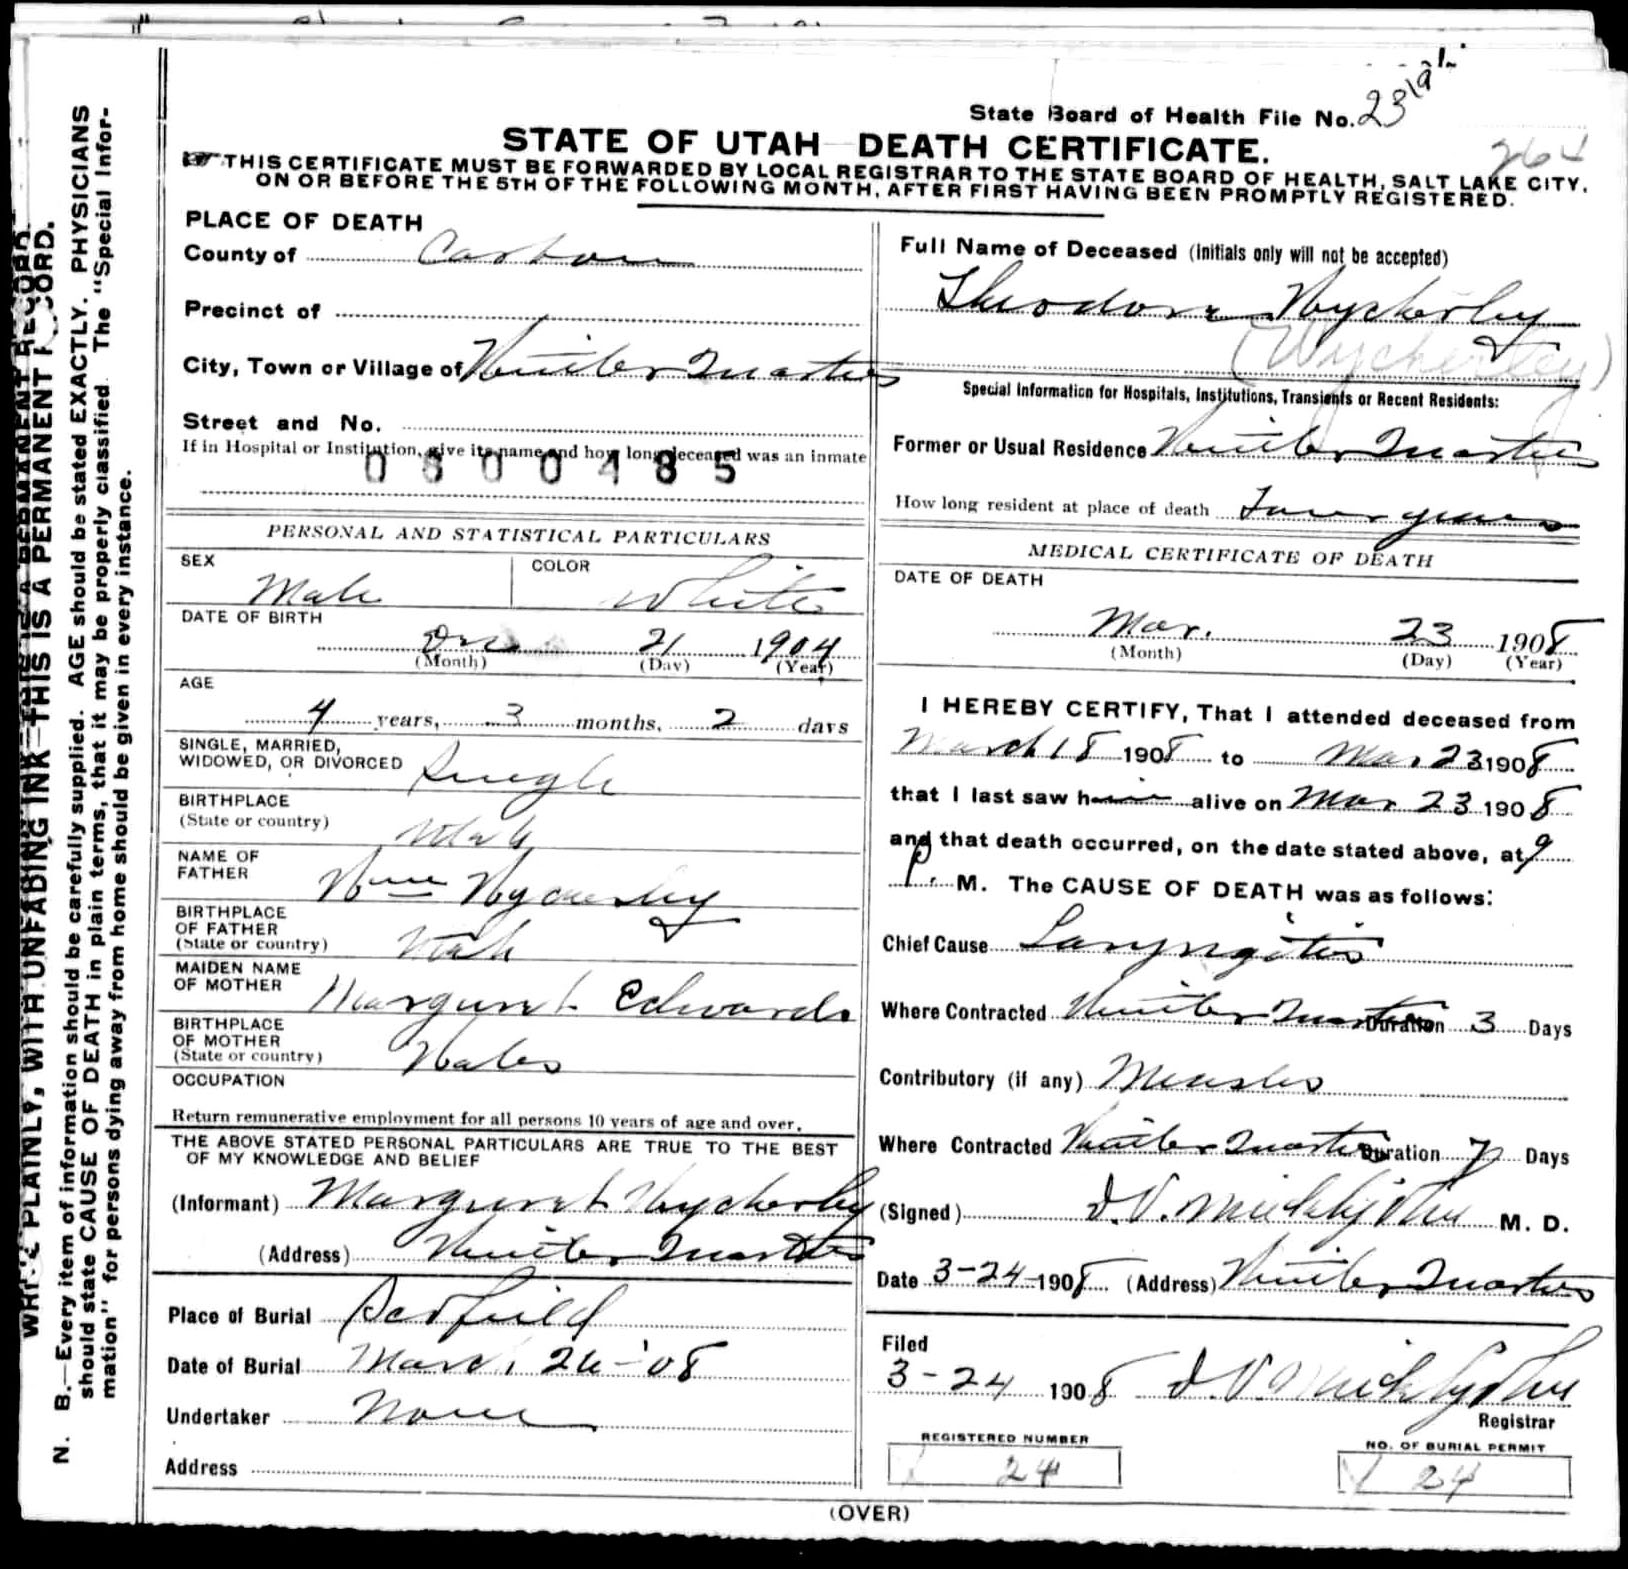 State Board of Health File No. 23
264
STATE OF UTAH DEATH CERTIFICATE.
THIS CERTIFICATE MUST BE FORWARDED BY LOCAL REGISTRAR TO THE STATE BOARD OF HEALTH, SALT LAKE CITY,
ON OR BEFORE THE 5TH OF THE FOLLOWING MONTH, AFTER FIRST HAVING BEEN PROMPTLY REGISTERED.
WRITE PLAINLY, WITH UNFADING INK—THIS IS A PERMANENT RECORD.
N. B.—Every item of information should be carefully supplied. AGE should be stated EXACTLY. PHYSICIANS
should state CAUSE OF DEATH in plain terms, that it may be properly classified. The "Special Infor-
mation" for persons dying away from home should be given in every instance.
PLACE OF DEATH
County of Carbon
Precinct of
City, Town or Village of Winter Quarters
Street and No.
If in Hospital or Institution, give its name and how long deceased was an inmate
0300485
PERSONAL AND STATISTICAL PARTICULARS
SEX Male COLOR White
DATE OF BIRTH
Dec 21 1904
(Month) (Day) (Year)
AGE
4 years, 3 months, 2 days
SINGLE, MARRIED,
WIDOWED, OR DIVORCED Single
BIRTHPLACE
(State or country) Utah
NAME OF
FATHER Wm Wycherley
BIRTHPLACE
OF FATHER
(State or country) Utah
MAIDEN NAME
OF MOTHER Margaret Edwards
BIRTHPLACE
OF MOTHER
(State or country) Wales
OCCUPATION
Return remunerative employment for all persons 10 years of age and over.
THE ABOVE STATED PERSONAL PARTICULARS ARE TRUE TO THE BEST
OF MY KNOWLEDGE AND BELIEF
(Informant) Margaret Wycherley
(Address) Winter Quarters
Place of Burial Scofield
Date of Burial March 26-'08
Undertaker None
Address
Full Name of Deceased (initials only will not be accepted)
Theodore Wycherley
(Wycherley)
Special Information for Hospitals, Institutions, Transients or Recent Residents:
Former or Usual Residence Winter Quarters
How long resident at place of death Four years
MEDICAL CERTIFICATE OF DEATH
DATE OF DEATH
Mar. 23 1908
(Month) (Day) (Year)
I HEREBY CERTIFY, That I attended deceased from
March 18 1908 to Mar. 23 1908
that I last saw him alive on Mar 23 1908
and that death occurred, on the date stated above, at 9
P. M. The CAUSE OF DEATH was as follows:
Chief Cause Laryngitis
Where Contracted Winter Quarters Duration 3 Days
Contributory (if any) Measles
Where Contracted Winter Quarters Duration 7 Days
(Signed) M. D.
Date 3-24-1908 (Address) Winter Quarters
Filed
3-24 1908
Registrar
REGISTERED NUMBER
24
NO. OF BURIAL PERMIT
24
(OVER)